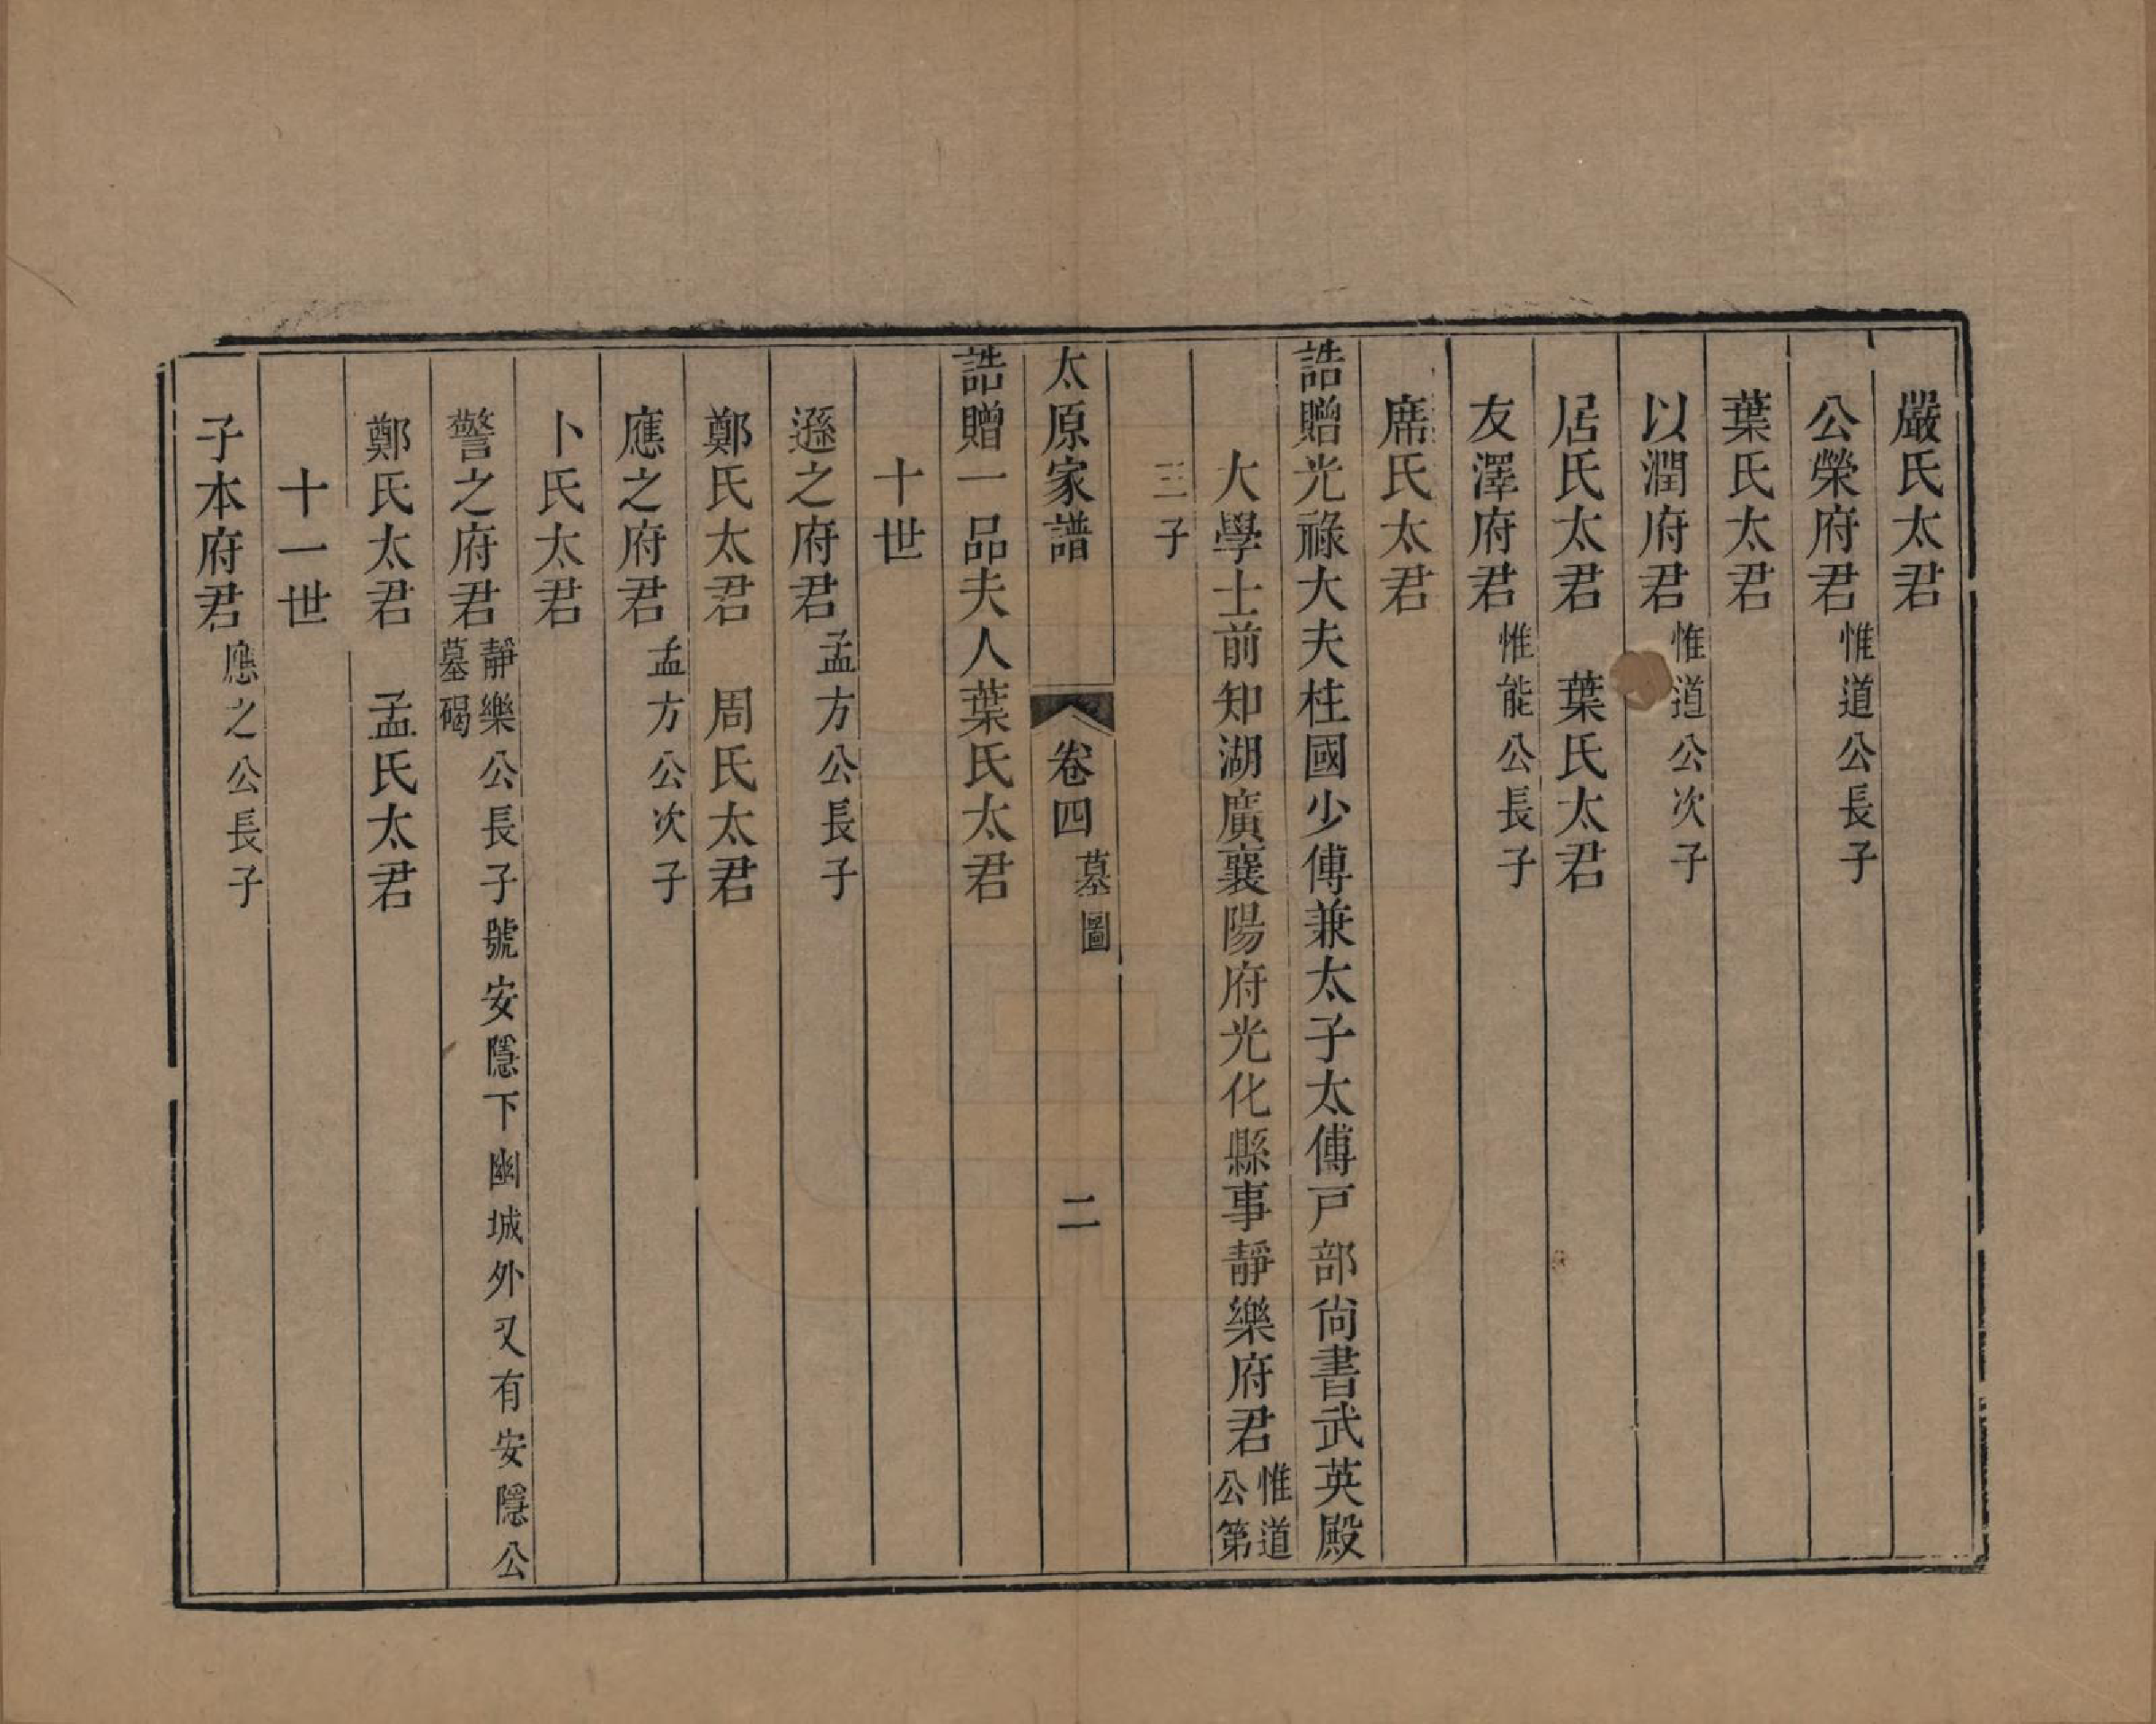 嚴氏太君
公榮府君惟道公長子
葉氏太君
以潤府君惟道公次子
居氏太君　葉氏太君
友澤府君惟能公長子
席氏太君
誥贈光祿大夫柱國少傅兼太子太傅戸部尙書武英殿
大學士前知湖廣襄陽府光化縣事靜樂府君惟道公第
三子
太原家譜　卷四　墓圖　二
誥贈一品夫人葉氏太君
十世
遜之府君孟方公長子
鄭氏太君　周氏太君
應之府君孟方公次子
卜氏太君
警之府君靜樂公長子號安隱下幽城外又有安隱公墓碣
鄭氏太君　孟氏太君
十一世
子本府君應之公長子